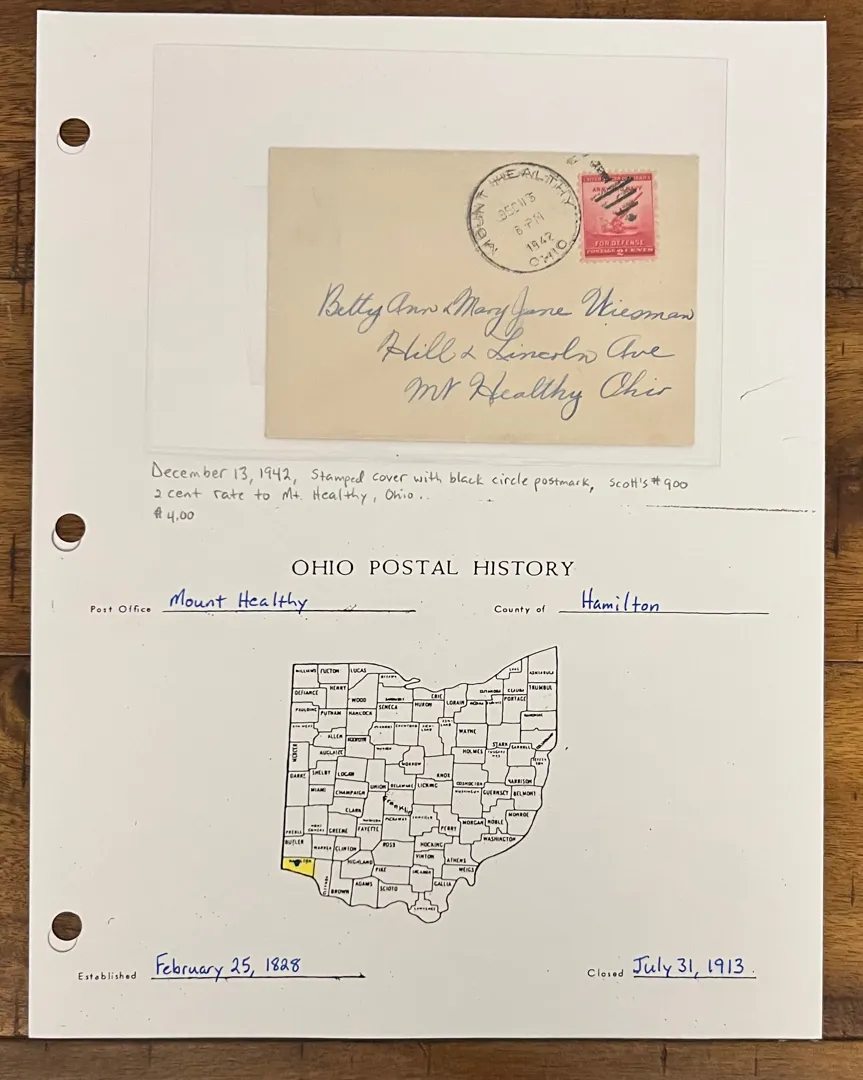 MOUNT HEALTHY
DEC 13
6 PM
1942
OHIO
FOR DEFENSE
POSTAGE 2 CENTS
Betty Ann & Mary Jane Wiesman
Hill & Lincoln Ave
Mt Healthy Ohio
December 13, 1942, Stamped cover with black circle postmark, Scott's # 900
2 cent rate to Mt. Healthy, Ohio..
$4.00
OHIO POSTAL HISTORY
Post Office Mount Healthy County of Hamilton
WILLIAMS FULTON LUCAS
DEFIANCE HENRY WOOD ERIE LORAIN GEAUGA TRUMBUL
PAULDING PUTNAM HANCOCK SENECA HURON PORTAGE
ALLEN WAYNE STARK CARROLL
MERCER AUGLAIZE HOLMES
MORROW KNOX
DARKE SHELBY LOGAN HARRISON
MIAMI CHAMPAIGN UNION DELAWARE LICKING COSHOCTON GUERNSEY BELMONT
CLARK Franklin
PREBLE GREENE FAYETTE PICKAWAY PERRY MORGAN NOBLE MONROE
BUTLER WARREN CLINTON ROSS HOCKING WASHINGTON
HIGHLAND PIKE VINTON ATHENS MEIGS
BROWN ADAMS SCIOTO GALLIA
LAWRENCE
Established February 25, 1828 Closed July 31, 1913.